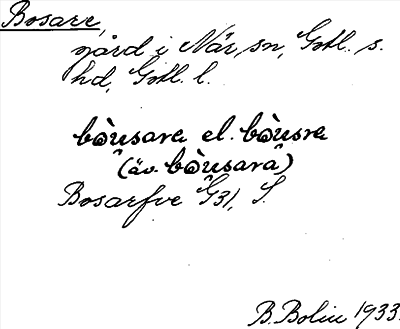 Bosarr,
gård i När, sn, Gotl. s.
hd, Gotl. l.
bòusara el. bòusra
(äv. bòusarà)
Bosarfve G31, S.
B. Bolin 1933.